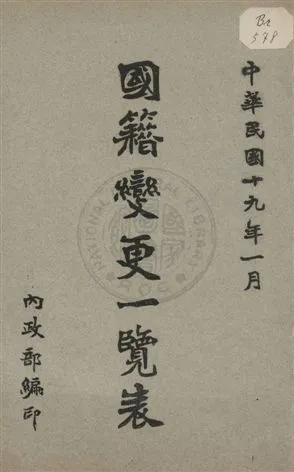 Br
578
中華民國十九年一月
國籍變更一覽表
內政部編印
NATIONAL CENTRAL LIBRARY